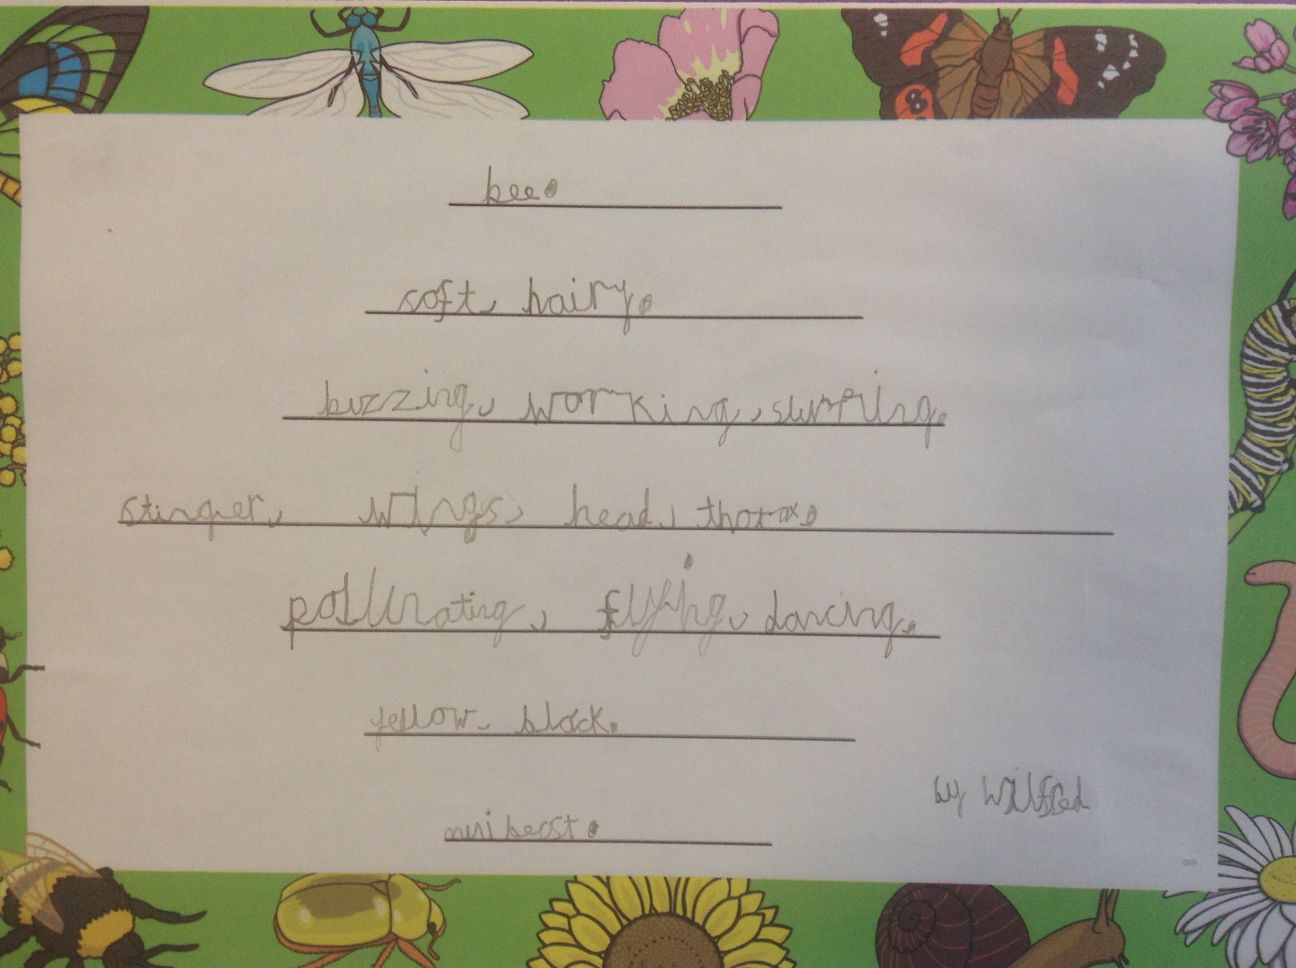 bee.
soft, hairy.
buzzing, working, surping.
stinger, wings, head, thorax.
pollinating, flying, dancing.
yellow, black.
minibeast.
by Wilfred